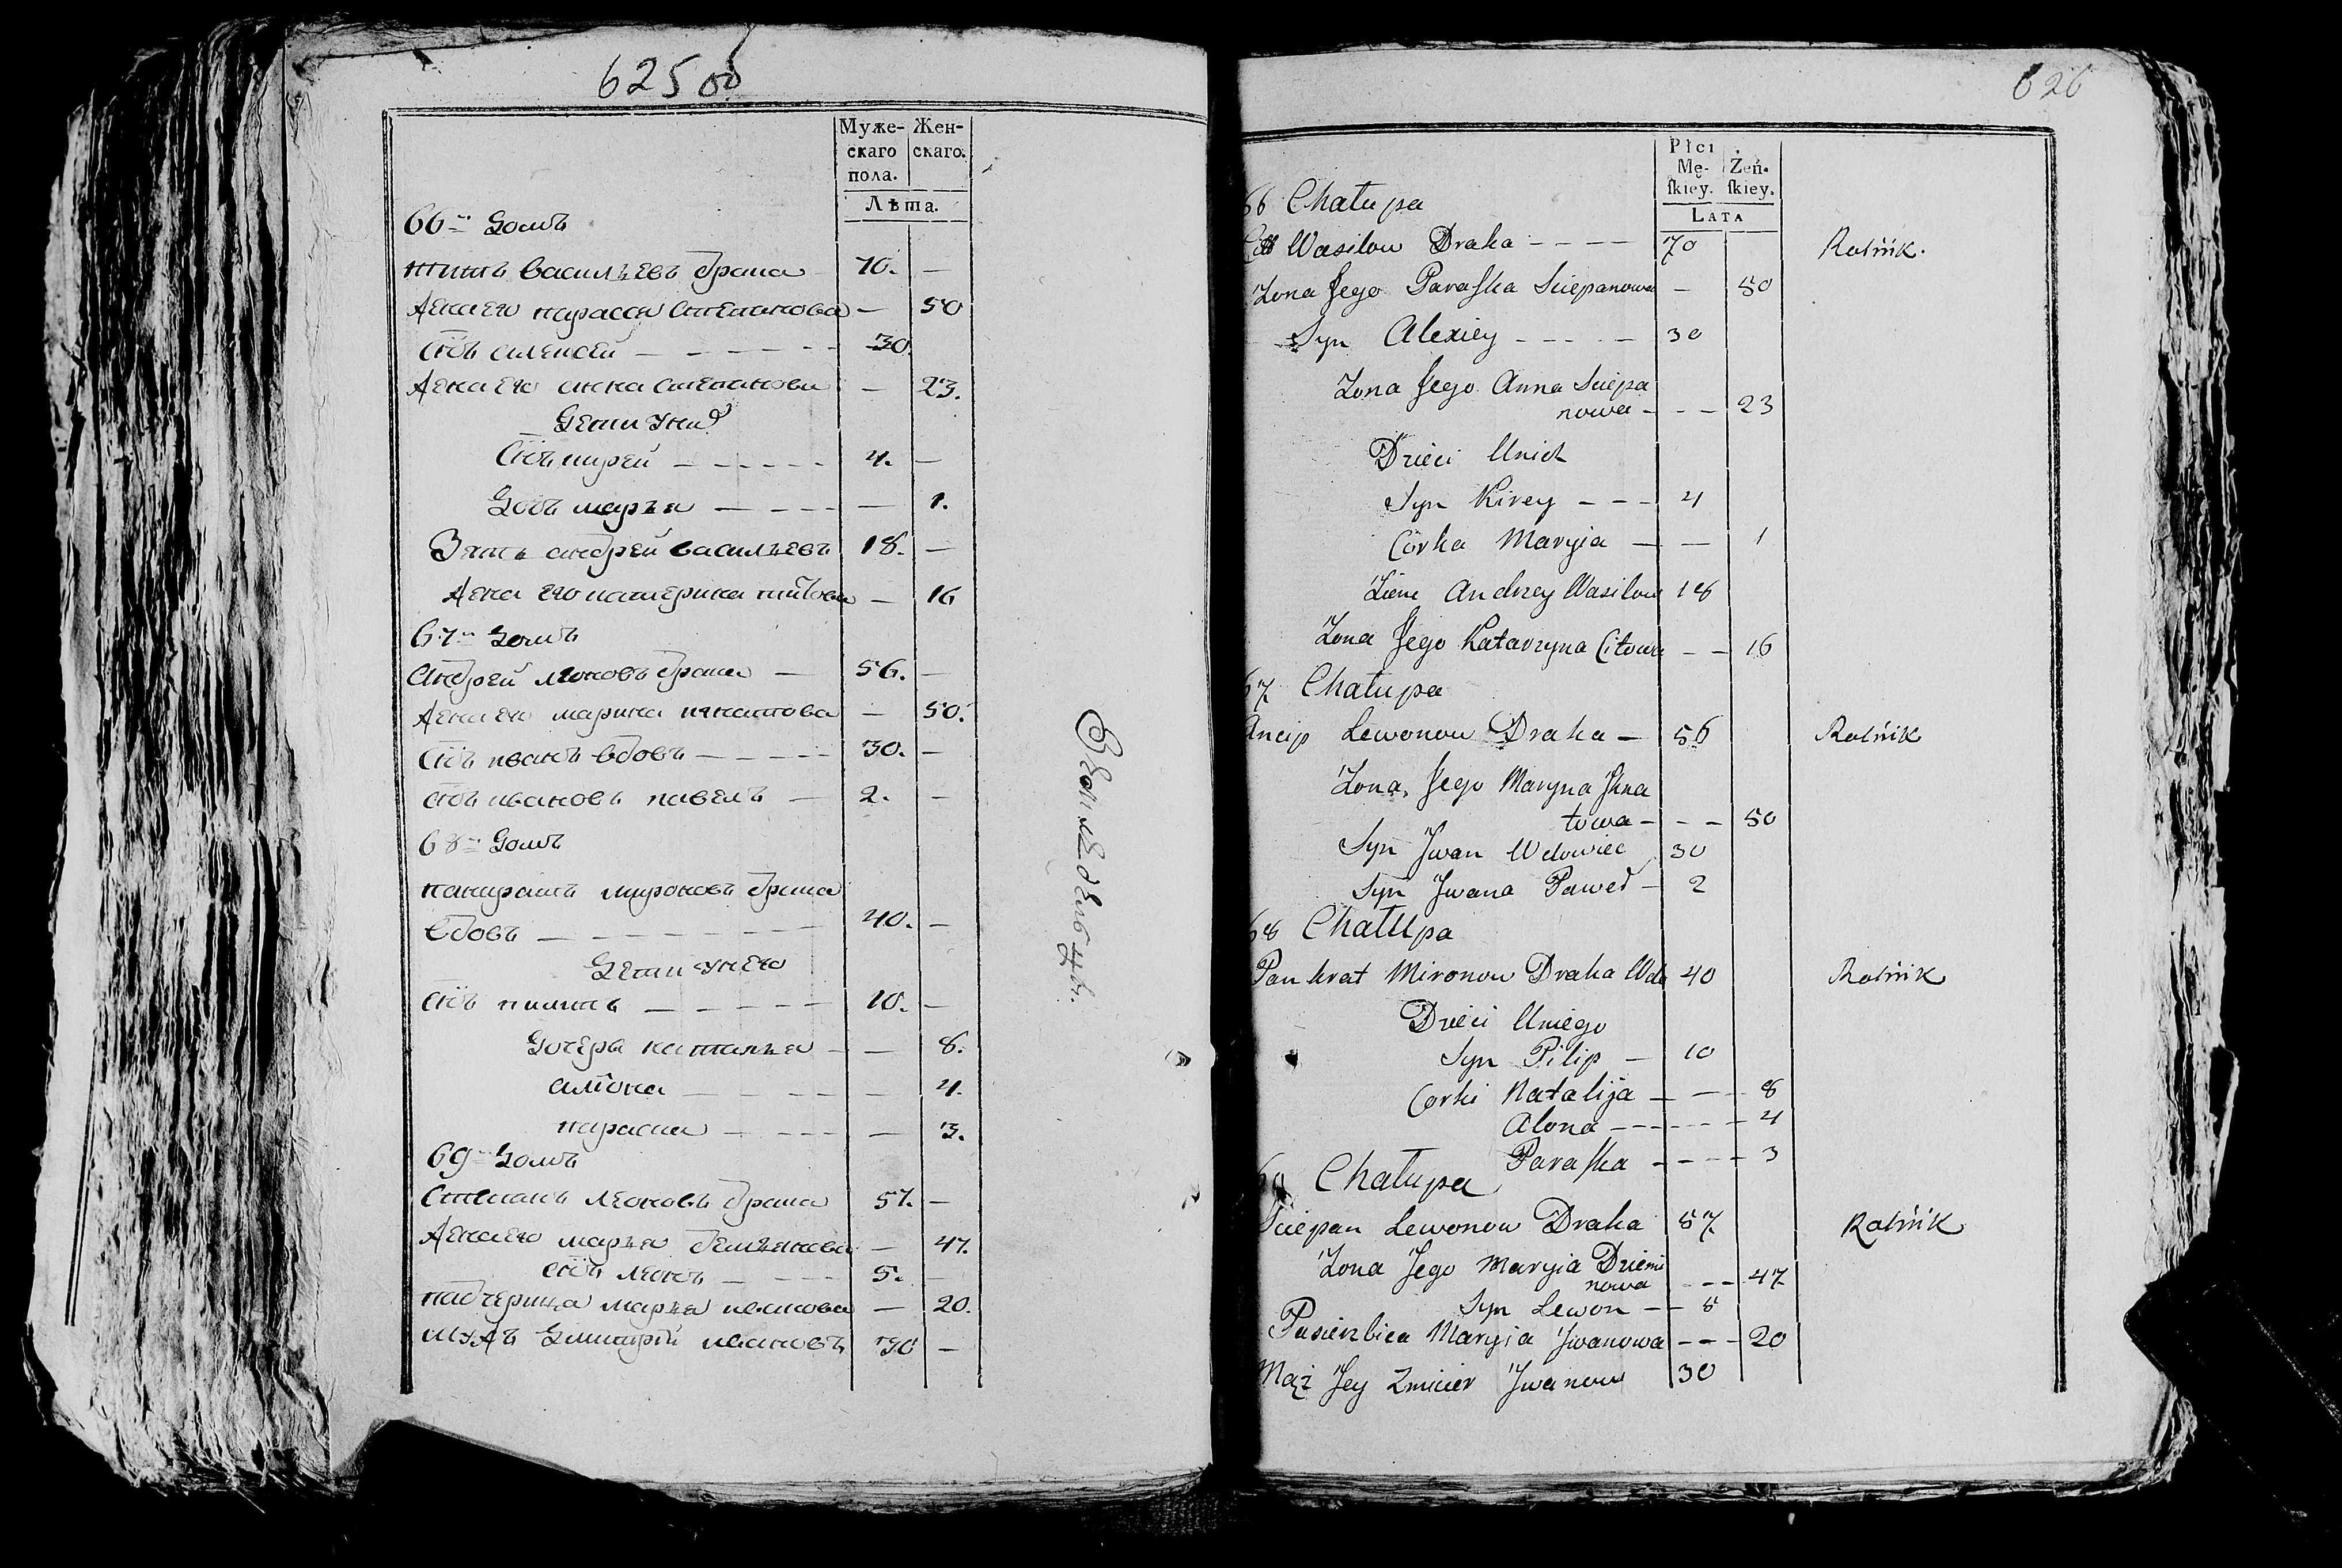 625 об
Муже-
скаго
пола.
Жен-
скаго.
Лѣта.
66й домъ
титъ васильевъ драка 70. —
жена его параска степанова — 50
снъ алексей — 30.
жена его анна степанова — 23.
дети у них
снъ кирей — 4. —
дочь марья — — 1.
Зять андрей васильевъ 18. —
жена его катерина титова — 16
67й домъ
леоновъ драка — 56. —
жена его марина игнатова — 50.
снъ иванъ вдовъ — 30. —
снъ ивановъ павелъ — 2. —
68й домъ
панкратъ мироновъ драка
вдовъ — 40. —
дети у него
снъ пилипъ — 10. —
дочери наталья — — 8.
алиона — — 4.
параска — — 3.
69й домъ
степанъ леоновъ драка 57. —
жена его марья демьянова — 47.
снъ леонъ — 5. —
падчерица марья иванова — 20.
мужъ дмитрей ивановъ 30 —
Земледелецъ.
626
Płci
Mę-
ſkiey.
Żeń-
ſkiey.
LATA
66 Chałupa
Wasilow Draka - - - - 70 Rolnik.
Żona Jego Paraſka Sciepanowa — 50
Syn Alexiey - - - - — 30
Żona Jego Anna Sciepa
nowa - - — 23
Dzieci Unich
Syn Kirey - - - 4
Córka Maryia — — 1
Zięć Andrzey Wasilow 18
Żona Jego Katarzyna Citowa - — 16
67 Chałupa
Ancip Lewonow Draka — 56 Rolnik
Żona Jego Maryna Jhna
towa - - — 50
Syn Jwan Wdowiec 30
Syn Jwana Paweł - 2
68 Chałupa
Pankrat Mironow Draka Wdo 40 Rolnik
Dzieci Uniego
Syn Pilip — 10
Corki Natalija — — 8
Alona - - - - - 4
Paraſka - - - - 3
69 Chałupa
Sciepan Lewonow Draka 57 Rolnik
Żona Jego Maryia Dziemi
nowa - - — 47
Syn Lewon - - 5
Pasierzbica Maryia Jwanowa - - - 20
Mąż Jey Zmicier Jwanow 30